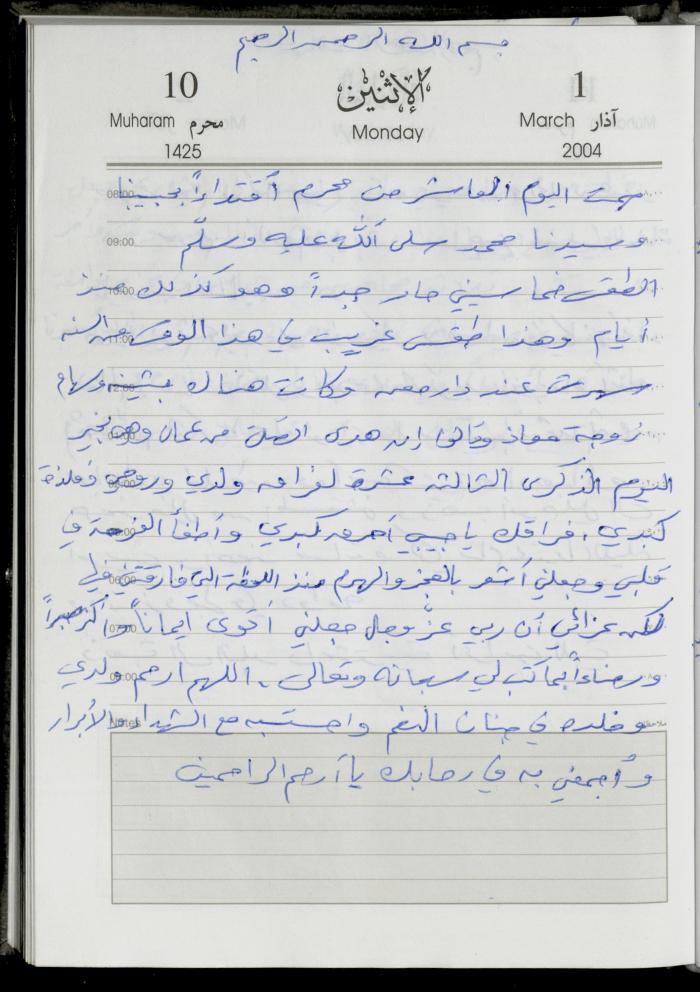 بسم الله الرحمن الرحيم
10 الإثنين 1
Muharam محرم Monday March آذار
1425 2004
08:00 صمت اليوم العاشر من محرم أقتداءاً بحبيبنا
09:00 وسيدنا محمد صلى الله عليه وسلّم
10:00 الطقس خماسيني حار جداً وهو كذلك منذ
11:00 أيام وهذا طقس غريب في هذا الوقت من السنه
سهرت عند دار معن وكانت هناك بثينه وسهام
زوجة معاذ وقالوا إن هدى اتصلت من عمان وهي بخير
اليوم الذكرى الثالثه عشرة لفراق ولدي وروحي وفلذة
كبدي، فراقك يا حبيبي أحرق كبدي وأطفأ الفرحة في
06:00 قلبي وجعلني أشعر بالعجز والهرم منذ اللحظة التي فارقتني فيها
07:00 لكن عزائي أن ربي عزّ وجل جعلني أقوى ايماناً وأكثر صبراً
ورضاءاً بما كتب لي سبحانه وتعالى. اللهم ارحم ولدي
Notes وخلده في جنان النعم واحتسبه مع الشهداء والأبرار
وأجمعني به في رحابك يا أرحم الراحمين